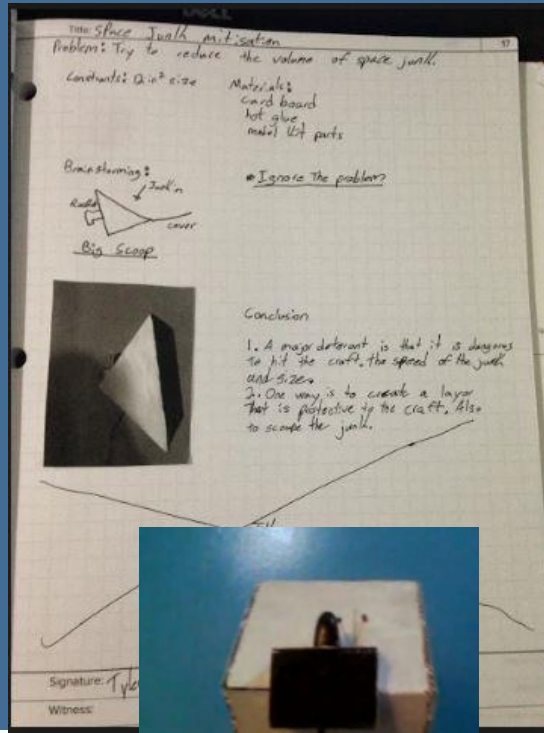 Title: Space Junk mitisation
17
Problem: Try to reduce the volume of space junk.
Constrants: 12 in² size
Materials:
card board
hot glue
model kit parts
Brainstorming:
Junk in
cover
Big Scoop
• Ignore The problem?
Conclusion
1. A major deterant is that it is
to hit the craft, the speed of the junk
and size.
2. One way is to create a layor
that is protective to the craft. Also
to scoupe the junk.
Signature: Tyle
Witness: